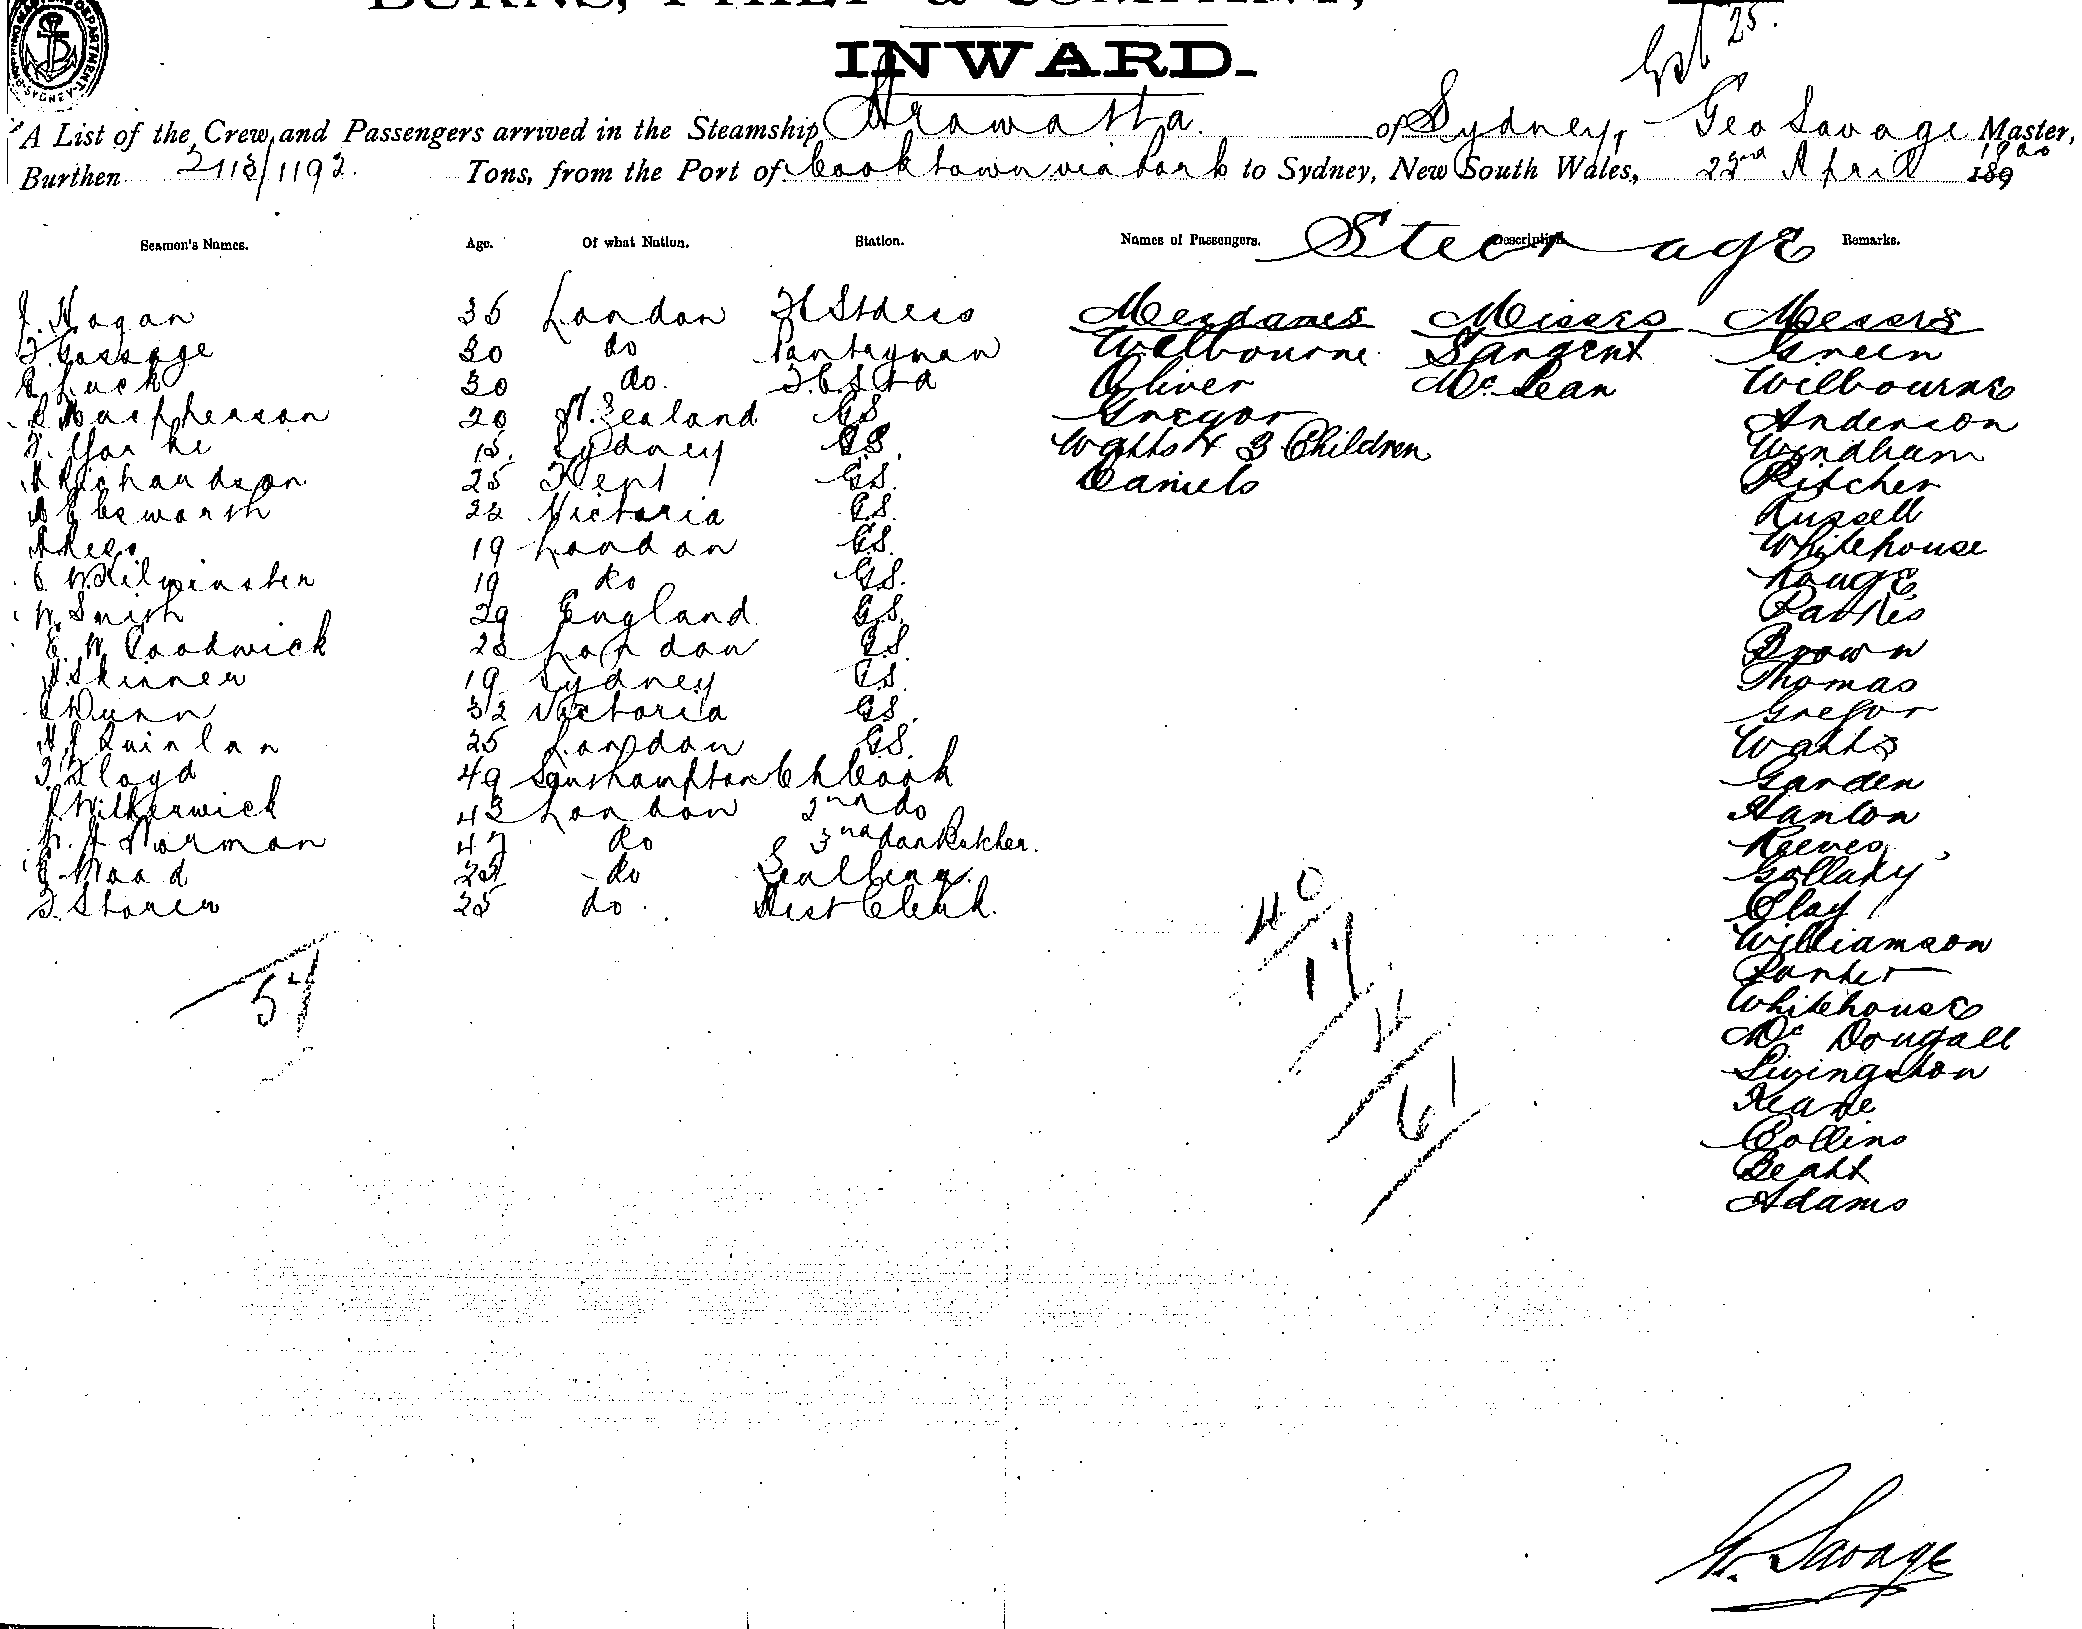 INWARD.
Sept 25.
A List of the Crew and Passengers arrived in the Steamship Arawatta. of Sydney, Geo Savage Master,
Burthen 2113/1192. Tons, from the Port of Cooktown via Ports to Sydney, New South Wales, 22nd April 189 1900
Seamen's Names. Age. Of what Nation. Station. Names of Passengers. Description. Remarks.
Steerage
J. Hagan 35 London Mesdames Misses Messrs
F. Gossage 30 do Pantryman Welbourne Sargent Green
Luck 30 do. Oliver McLean Wilbourne
Macpherson 20 N. Zealand GS. Gregor Anderson
15. Sydney GS. Watts & 3 Children Wyndham
A Richardson 25 Kent GS. Daniels Pitcher
A Ebsworth 22 Victoria GS. Russell
A Rees 19 London GS. Whitehouse
C W. Kilminster 19 do GS. Rouge
W. Smith 29 England GS. Parkes
E. W. Goodwick 23 London GS. Brown
Skinner 19 Sydney GS. Thomas
Dunn 32 Victoria GS. Gregor
Quinlan 25 London GS. Watts
F. Lloyd 49 Southampton Ch Cook Garden
J. Witherwick 43 London 2nd do Hanlon
Norman 47 do 3rd do & Butcher. Reeves
Wood 23 do Scullery Gollaky
F. Storer 25 do. Asst Clerk. Clay
Williamson
Parker
Whitehouse
Mc Dougall
Livingston
Keane
Collins
Beatt
Adams
57
40
17
4
61
G. Savage